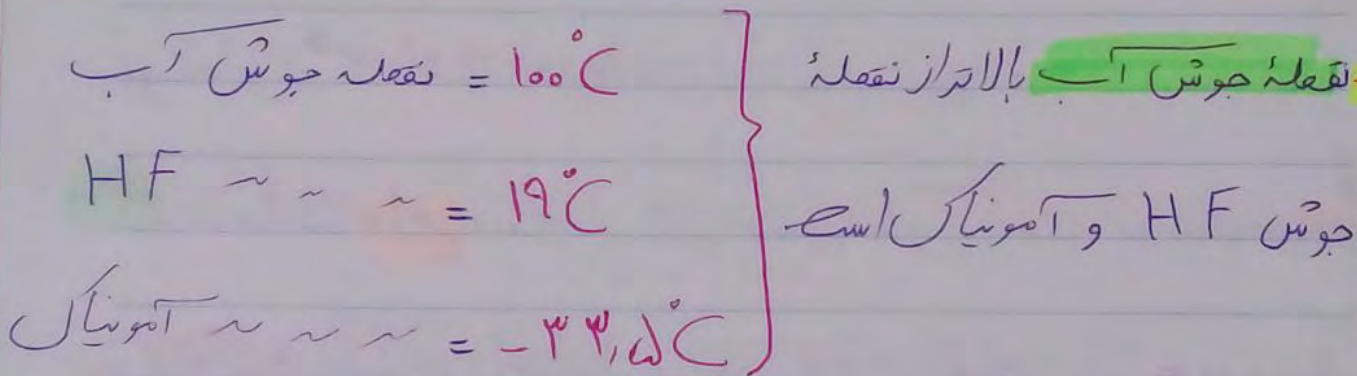 نقطهٔ جوش آب بالاتر از نقطهٔ
جوش HF و آمونیاک است
نقطه جوش آب = 100°C
HF ~ ~ = 19°C
آمونیاک ~ ~ ~ = -۳۳,۵°C